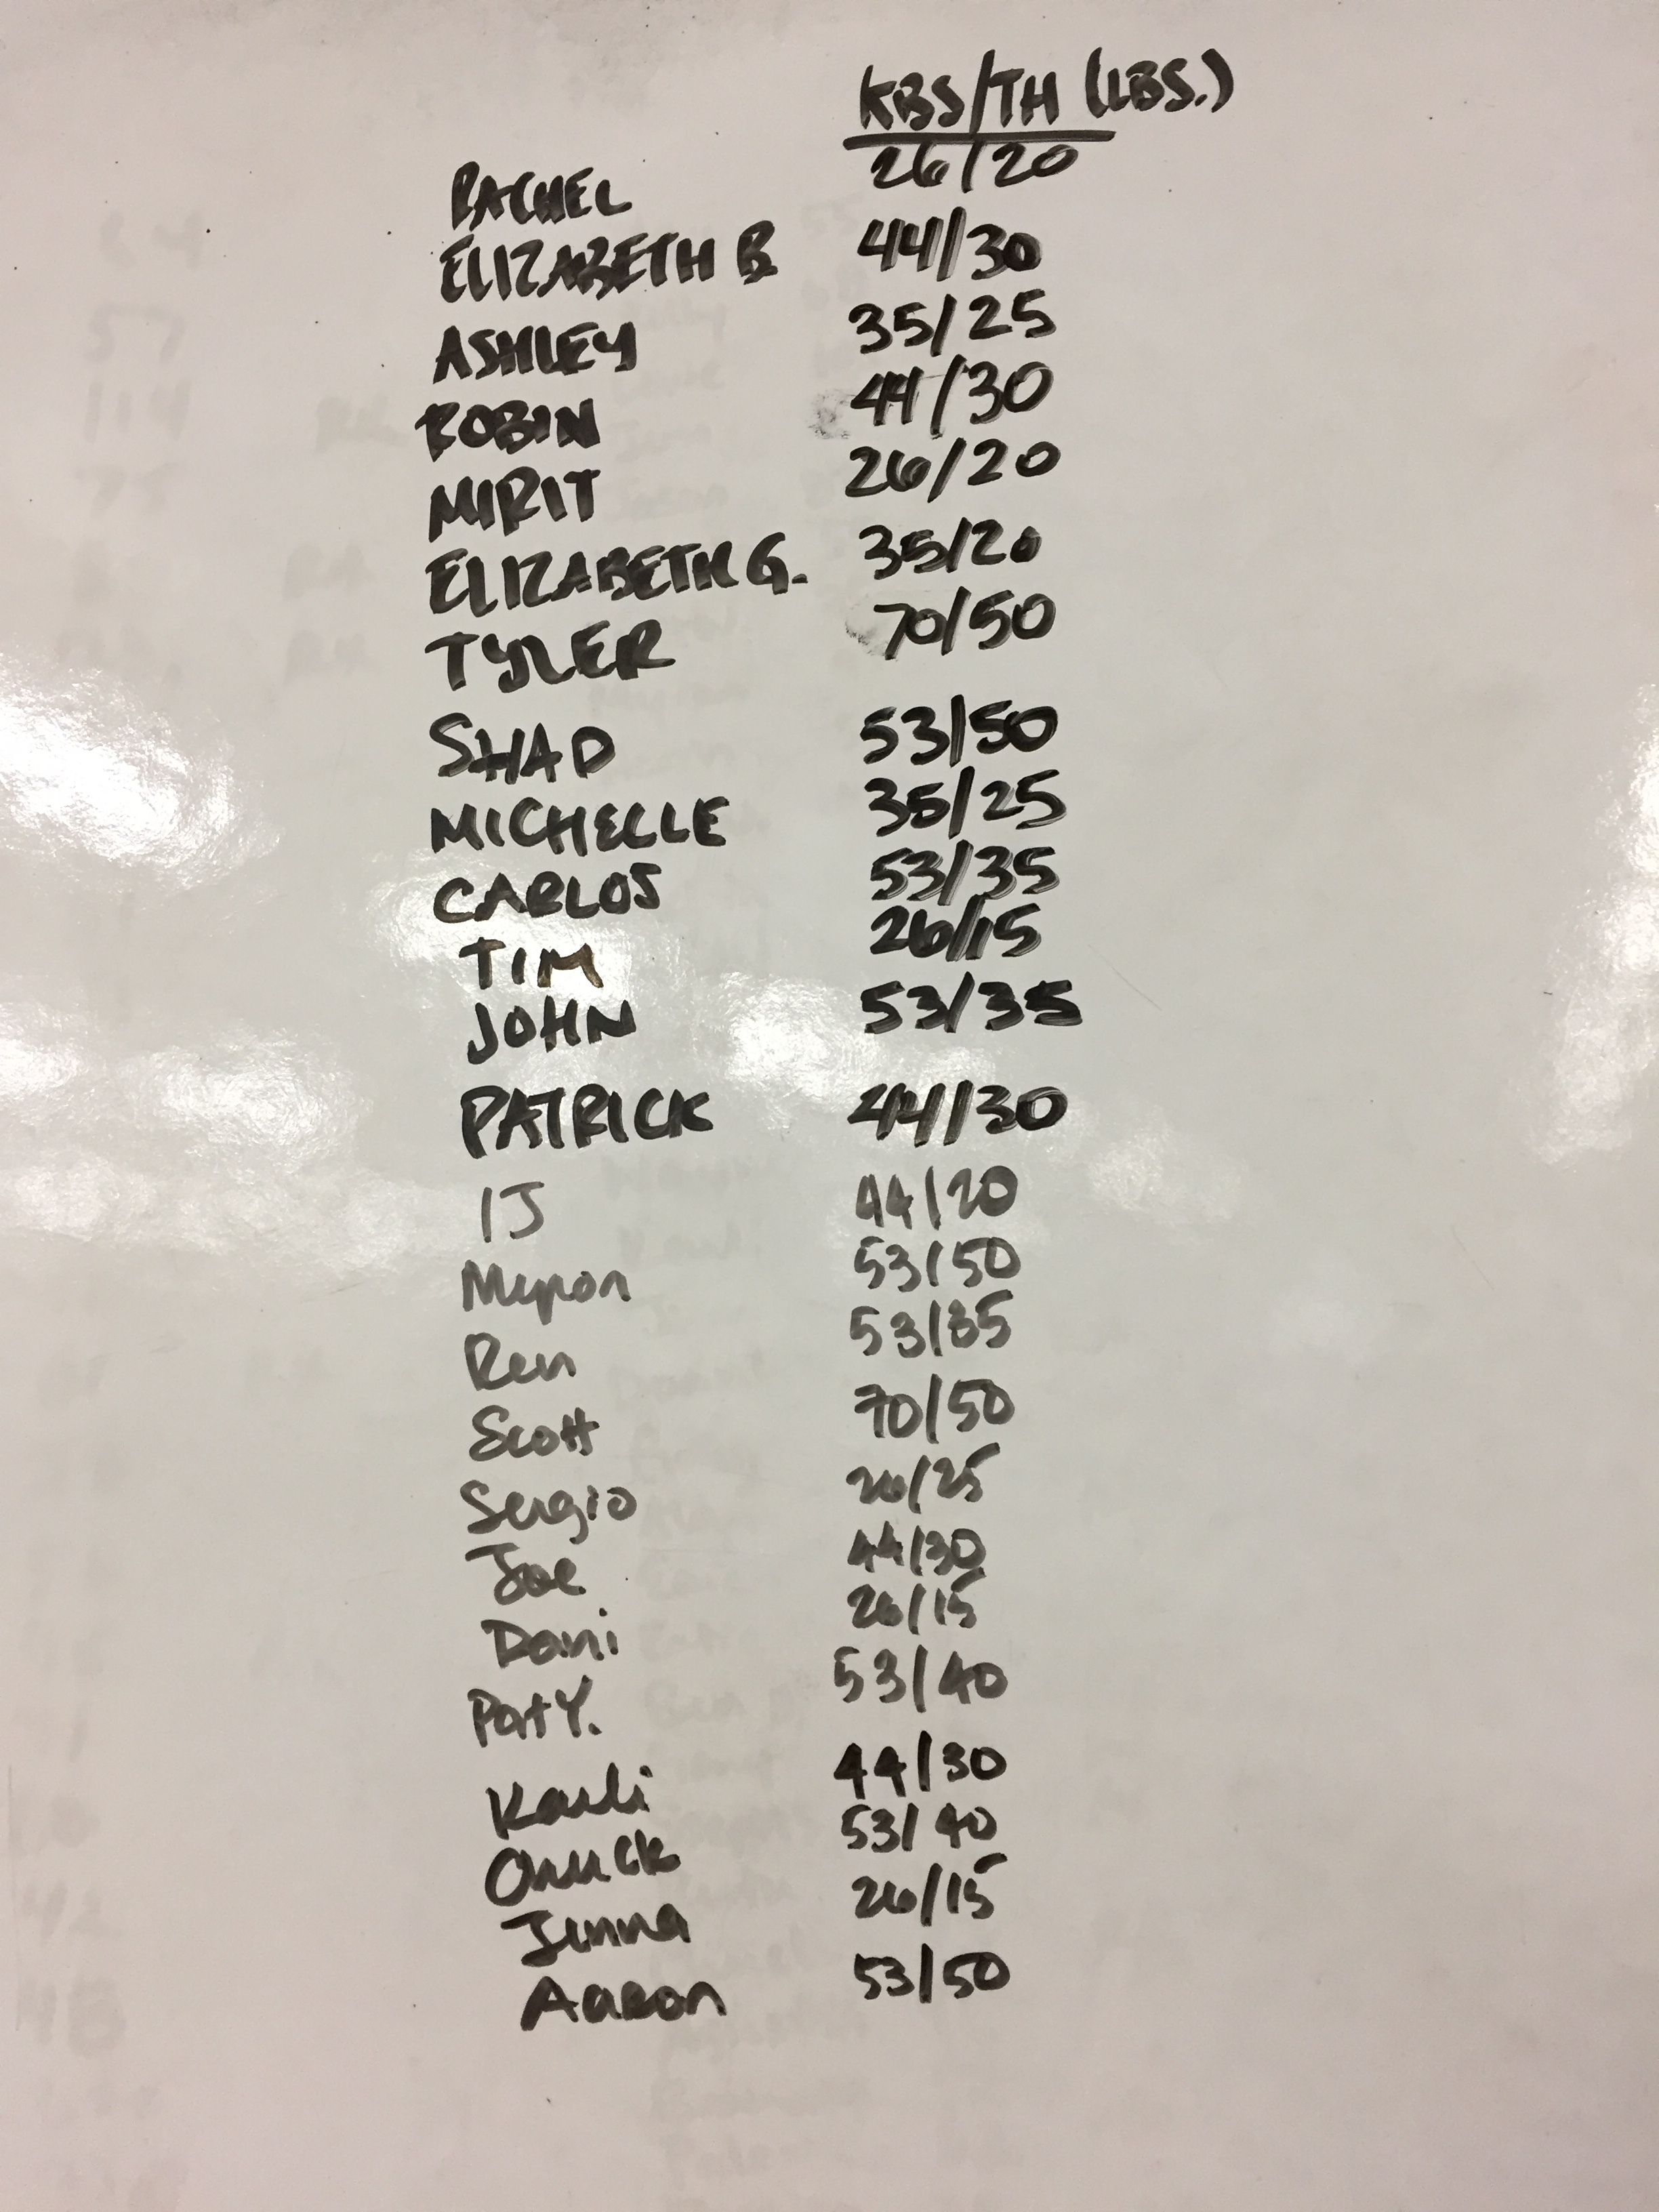 KBS/TH (LBS.)
RACHEL 26/20
ELIZABETH B. 44/30
ASHLEY 35/25
ROBIN 44/30
MIRIT 26/20
ELIZABETH G. 35/20
TYLER 70/50
SHAD 53/50
MICHELLE 35/25
CARLOS 53/35
TIM 26/15
JOHN 53/35
PATRICK 44/30
IJ 44/20
Myron 53/50
Ren 53/35
Scott 70/50
Sergio 26/25
Joe 44/30
Dani 26/15
Pat Y. 53/40
Karli 44/30
Chuck 53/40
Jenna 26/15
Aaron 53/50